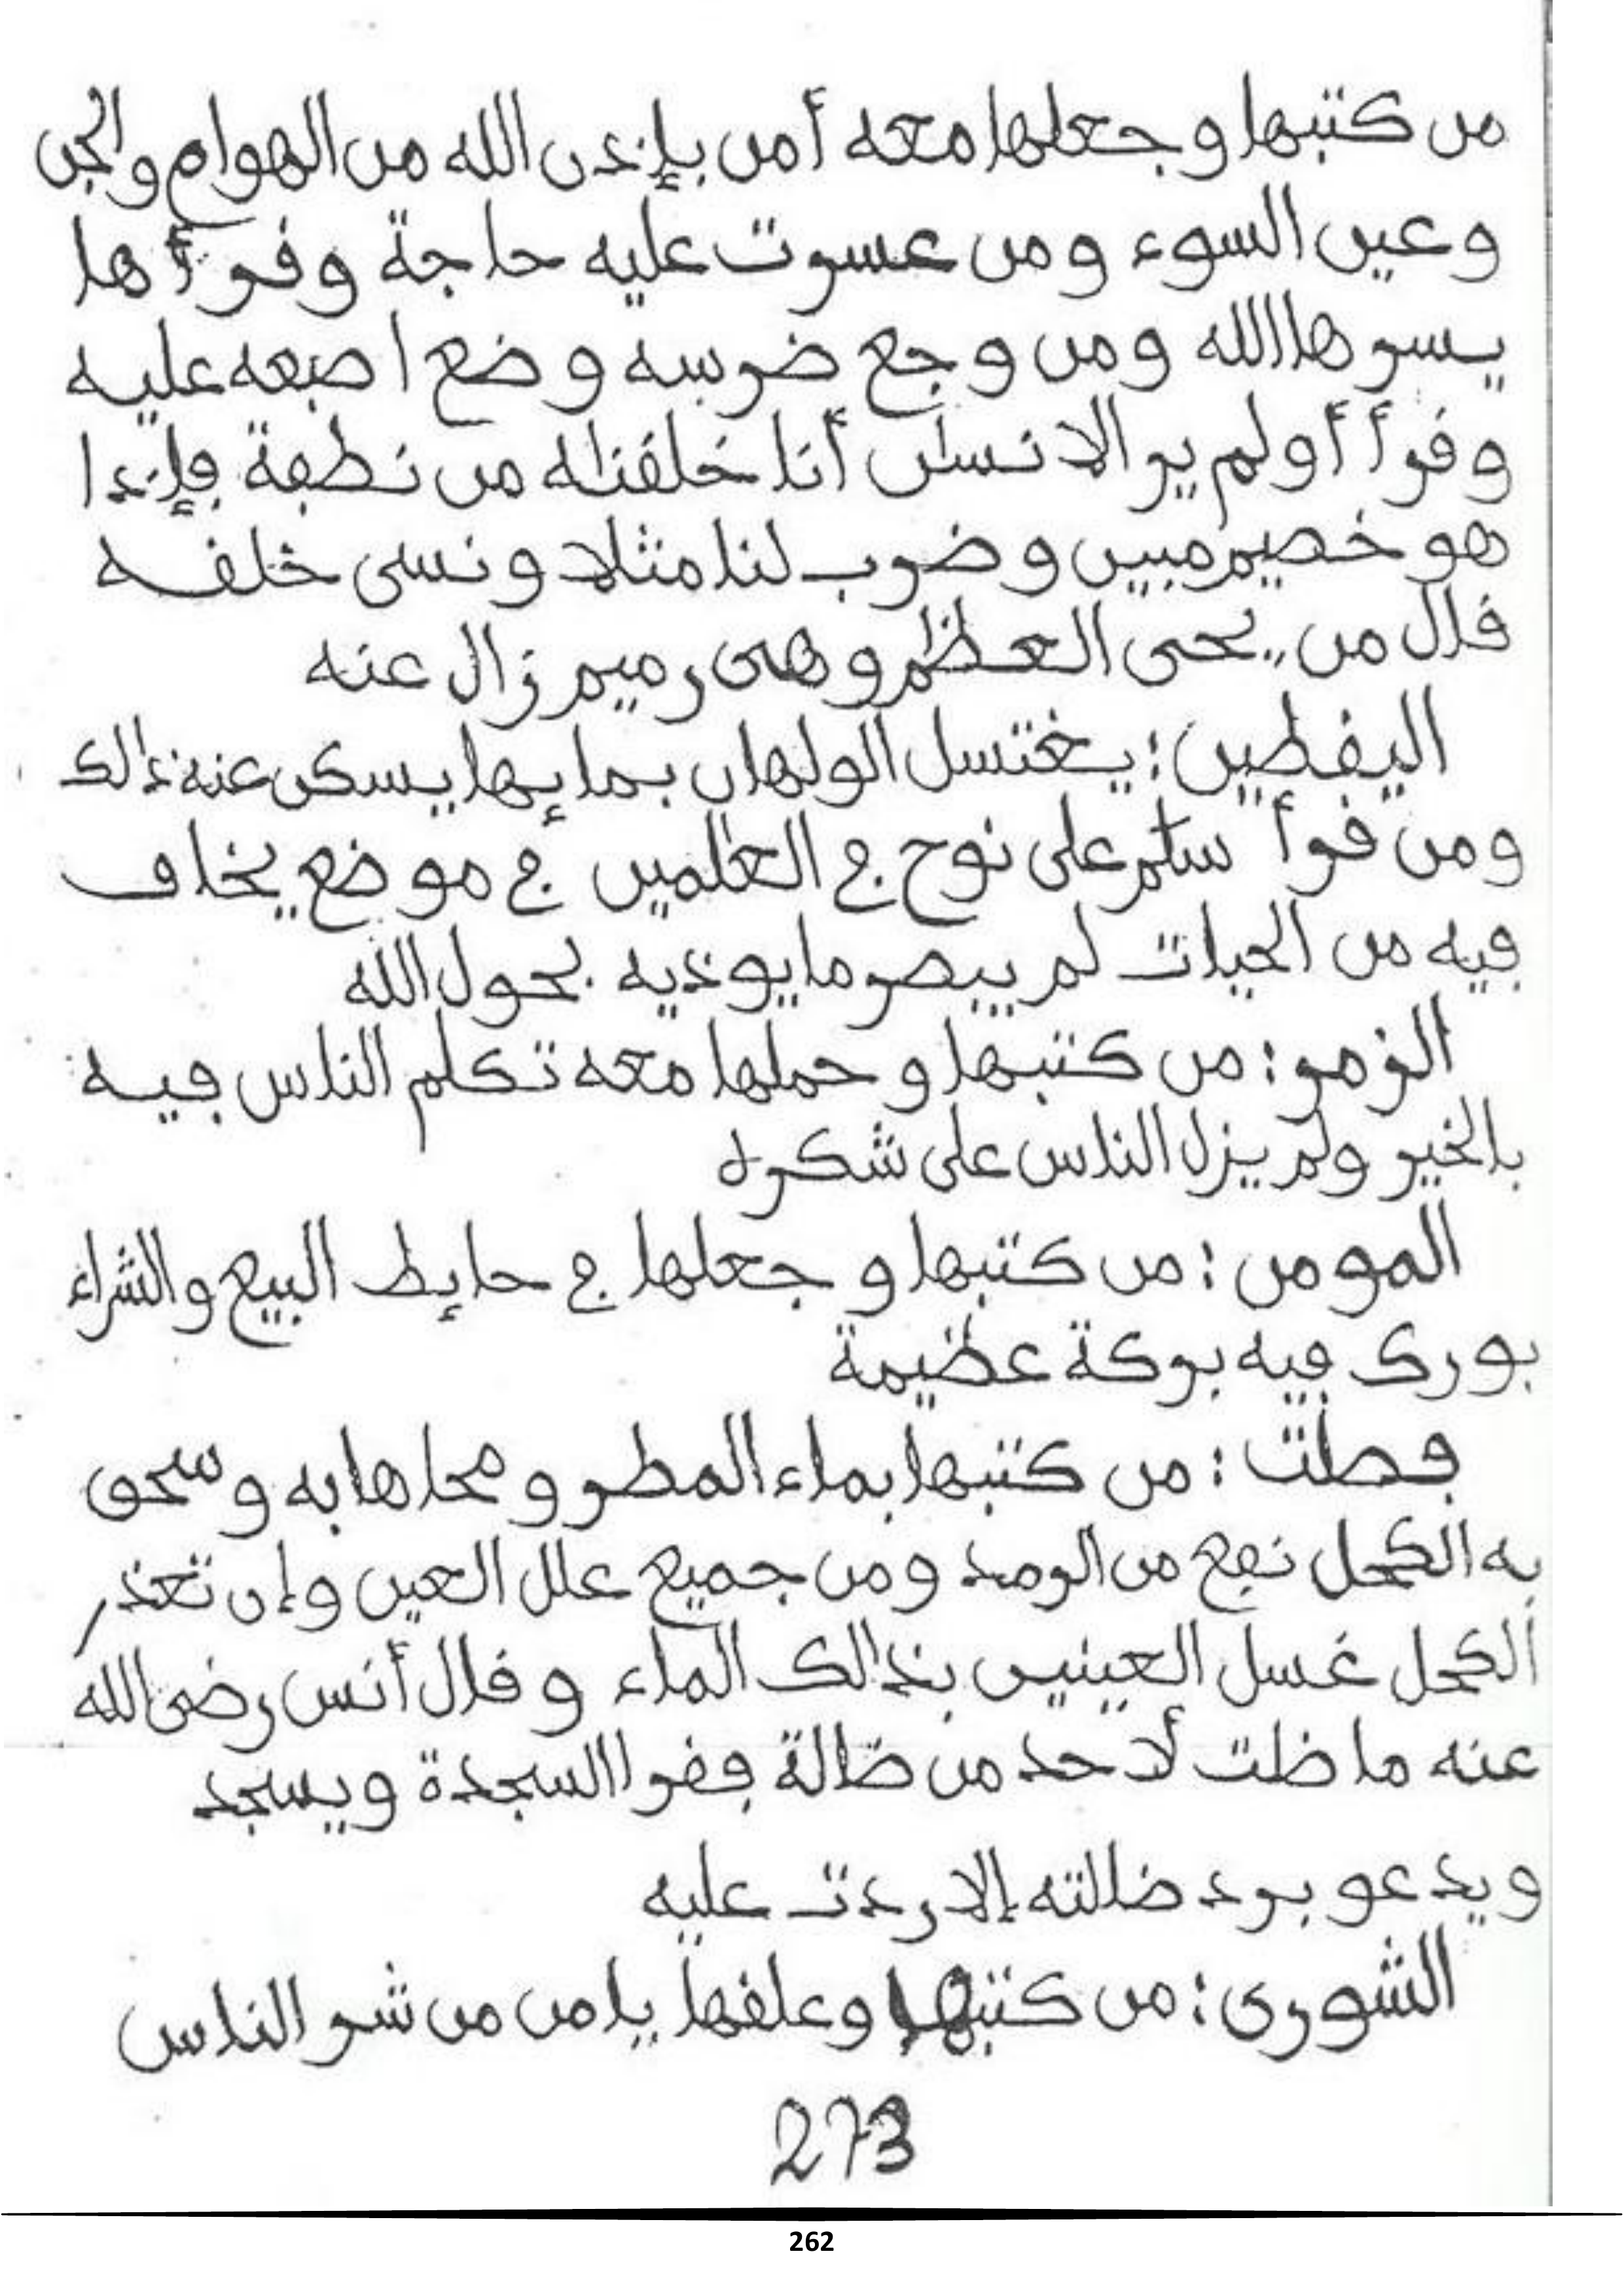 من كتبها وجعلها معه أمن بإذن الله من الهوام والجن
وعين السوء ومن عسرت عليه حاجة وقرأها
يسرها الله ومن وجع ضرسه وضع اصبعه عليه
وقرأ أولم ير الانسٰن أنا خلقنٰه من نطفة فإذا
هو خصيم مبين وضرب لنا مثلا ونسى خلقه
قال من يحى العظٰم وهى رميم زال عنه
اليقطين: يغتسل الولهان بمايها يسكن عنه ذالك
ومن قرأ سلٰم على نوح في العٰلمين في موضع يخاف
فيه من الحيات لم يبصر ما يوذيه بحول الله
الزمر: من كتبها وحملها معه تكلم الناس فيه
بالخير ولم يزل الناس على شكره
المومن: من كتبها وجعلها في حايط البيع والشراء
بورك فيه بركة عظيمة
فصلت: من كتبها بماء المطر ومحاها به وسحق
به الكحل نفع من الرمد ومن جميع علل العين وإن تعذر
الكحل غسل العينين بذالك الماء وقال أنس رضى الله
عنه ما ظلت لأحد من ضالة فقرا السجدة ويسجد
ويدعو برد ضالته إلا ردت عليه
الشورى: من كتبها وعلقها يامن من شر الناس
273
262